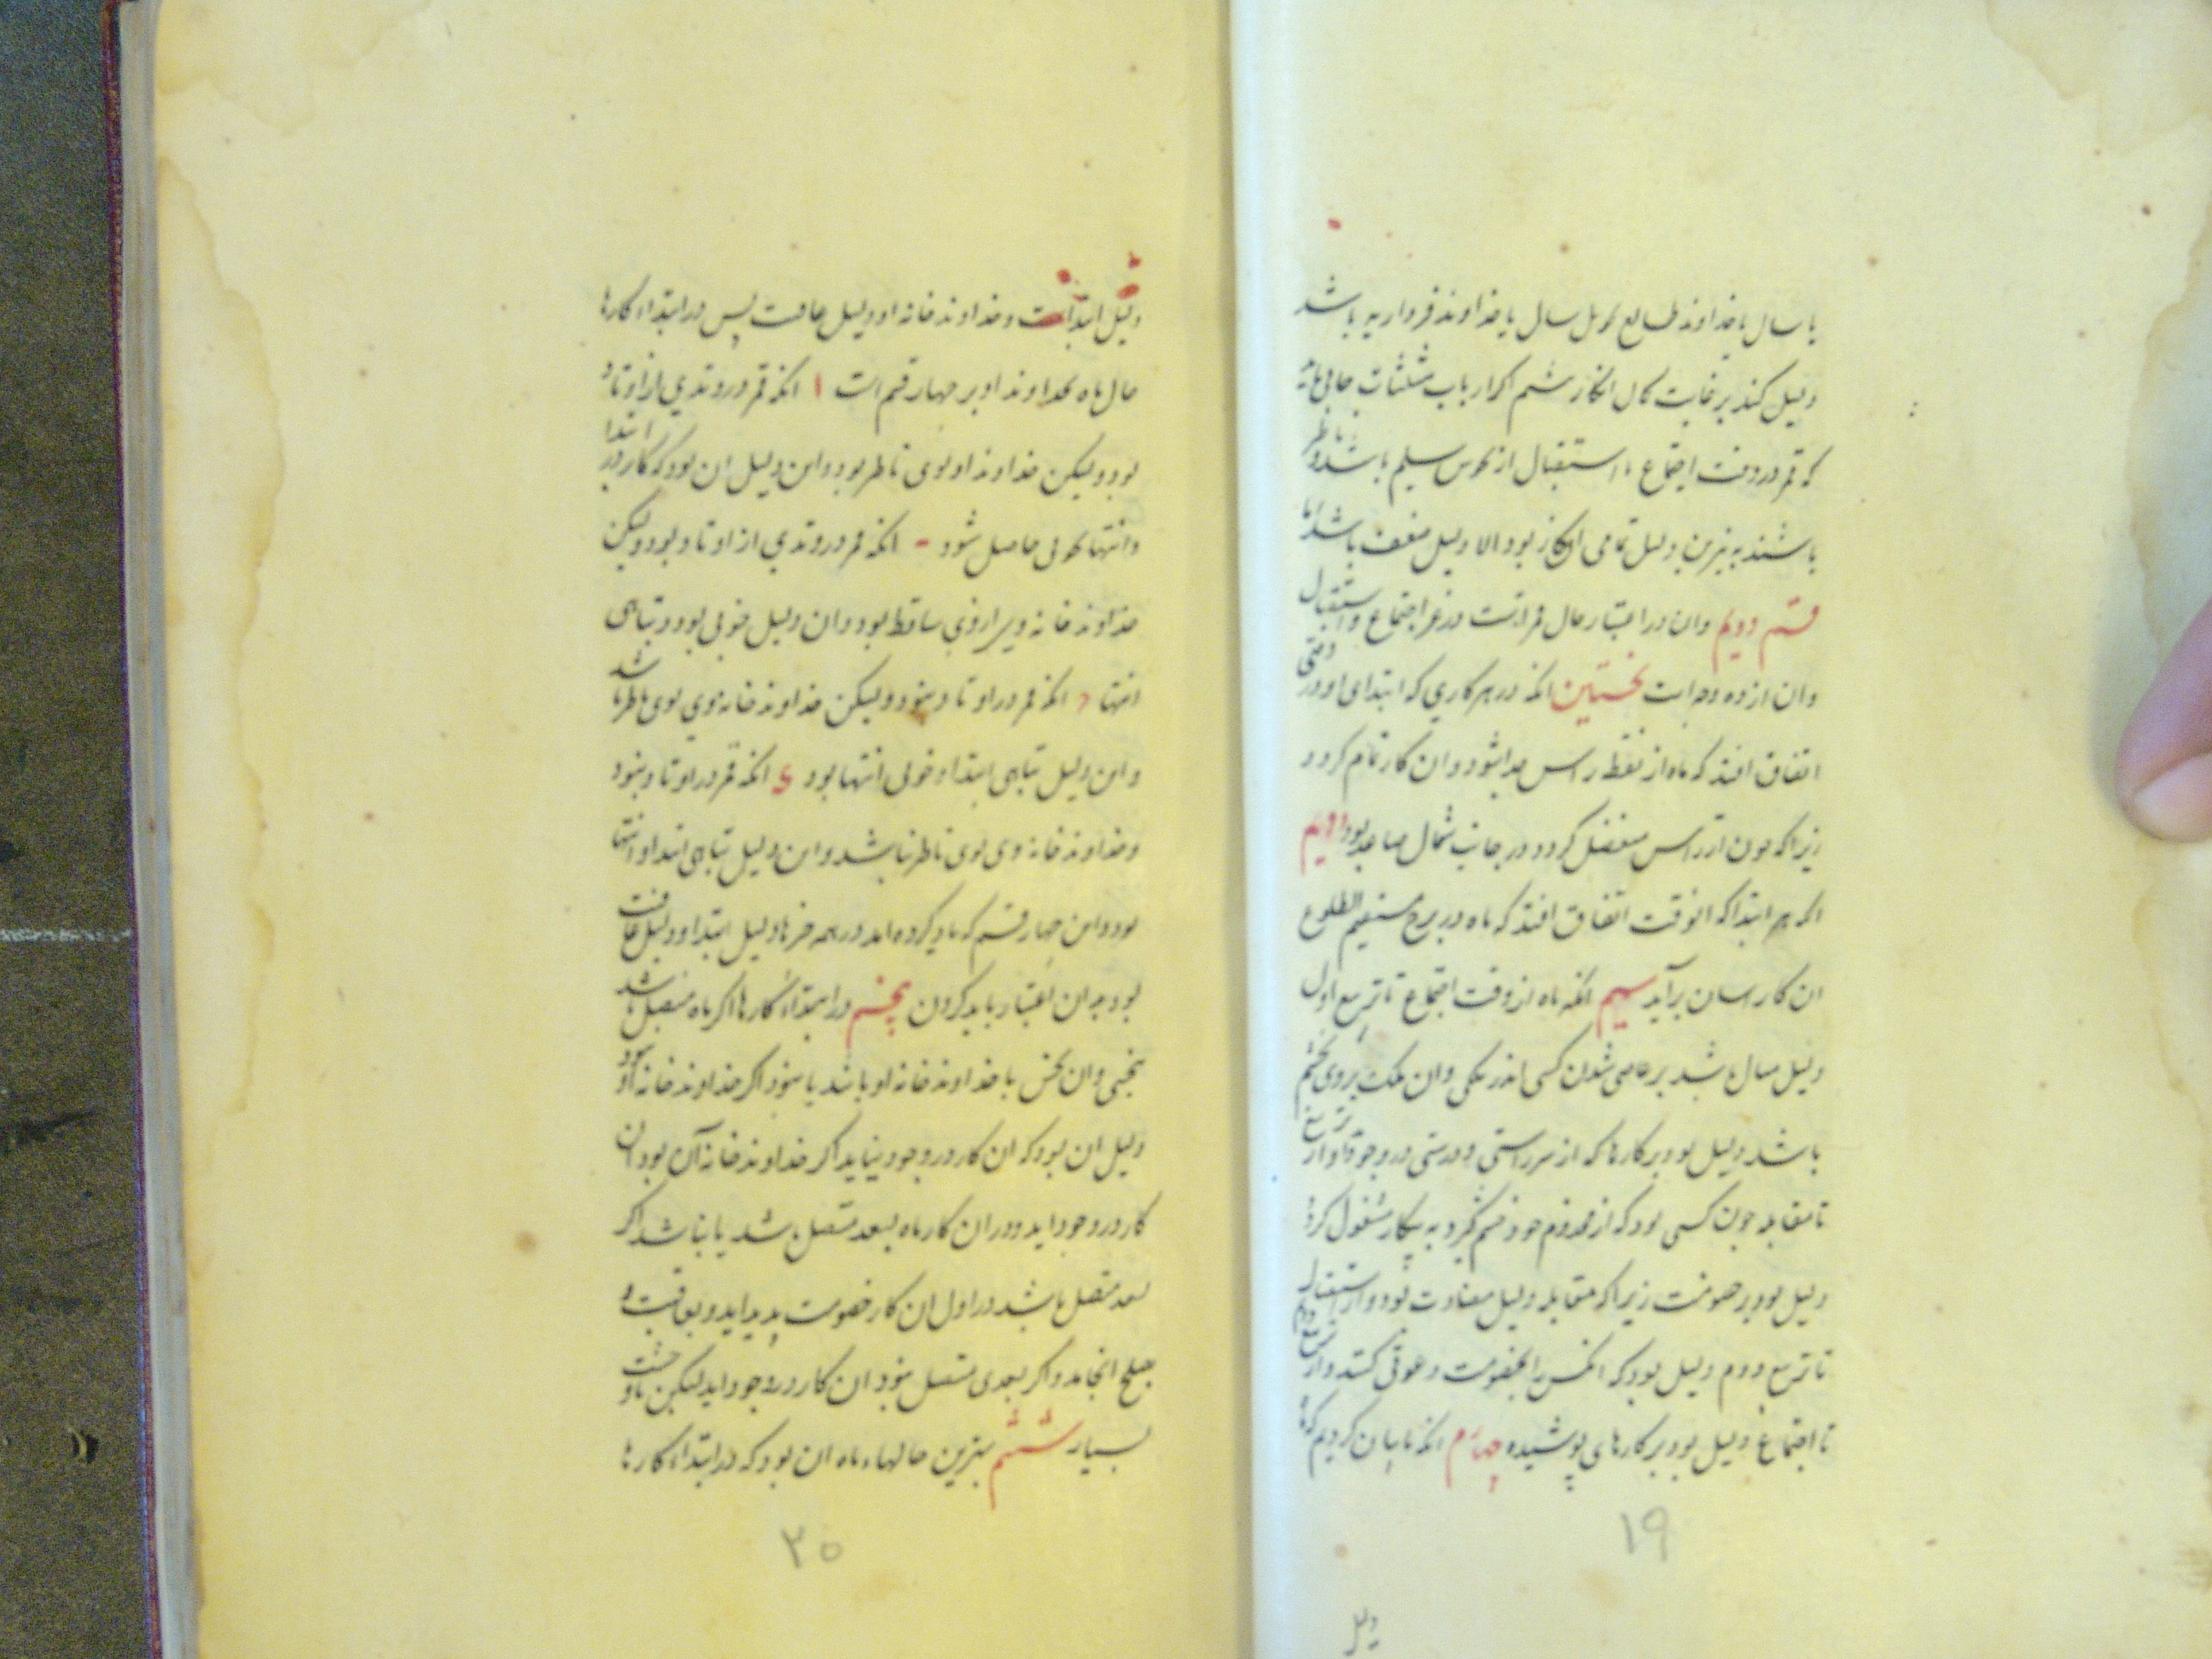 یا سال یا خداوند طالع تحویل سال یا خداوند فرداریه باشد
دلیل کند بر غایت کمال انکار ششم اگر ارباب مثلثات جای‌هاء
که قمر در وقت اجتماع یا استقبال از نحوس سلیم باشد و ناظر
باشند بهترین دلیل تمامی انکار بود والا دلیل ضعف باشد اما
قسم دویم وان در اعتبار حال قمرست در غیر اجتماع و استقبال
وان از ده وجه است نخستین انکه در هر کاری که ابتدای او در وقتی
اتفاق افتد که ماه از نقطه راس جدا شود و ان کار تمام کردد
زیرا که چون از راس منفصل کردد در جانب شمال صاعد بود دویم
اکه هر ابتدا که انوقت اتفاق افتد که ماه در برج مستقیم الطلوع
ان کار اسان برآید سیم انکه ماه از وقت اجتماع تا تربیع اول
دلیل سال باشد بر عاصی شدن کسی اندر ملکی وان ملک بروی بخشم
باشد دلیل بود بر کارها که از سر راستی و درستی در وجود آید و از تربیع
تا مقابله چون کسی بود که از مخدوم خود خشم گیرد به پیکار مشغول گردد
دلیل بود بر خصومت زیرا که مقابله دلیل معادات بود و از استقبال
تا تربیع دوم دلیل بود که انکس را بخصومت دعوتی کنند و از تربیع دوم
تا اجتماع دلیل بود بر کارهای پوشیده چهارم انکه ما بیان کردیم که ماه
۱۹
دلیل
دلیل ابتداست و خداوند خانه او دلیل عاقبت پس در ابتداء کارها
حال ماه خداوند او بر چهار قسم است ا انکه قمر در وتدی از اوتاد
بود ولیکن خداوند او بوی ناظر بود و این دلیل ان بود که کار در ابتدا
و انتها بخوبی حاصل شود ب انکه قمر در وتدی از اوتاد بود ولیکن
خداوند خانه ویرا از وی ساقط بود و ان دلیل خوبی بود و تباهی
انتها ج انکه قمر در اوتاد نبود ولیکن خداوند خانه وی بوی ناظر باشد
و این دلیل تباهی ابتدا و خوبی انتها بود د انکه قمر در اوتاد نبود
و خداوند خانه وی بوی ناظر نباشد و ان دلیل تباهی ابتدا و انتها
بود و این چهار قسم که یاد کرده اند در همه چیزها دلیل ابتدا و دلیل عاقبت
بود بدان اعتبار باید کردن پنجم در ابتداء کارها اگر ماه متصل باشد
بنحسی و ان نحس یا خداوند خانه او باشد یا نبود اگر خداوند خانه او نبود
دلیل ان بود که ان کار در وجود نیاید اگر خداوند خانه آن بود ان
کار در وجود اید و در ان کار ماه بسعد متصل باشد یا نباشد اگر
بسعد متصل باشد در اول ان کار خصومت پدید اید و بعاقبت
بصلح انجامد و اگر بسعدی متصل نبود ان کار در وجود اید لیکن با وحشت
بسیار ششم بهترین حالهاء ماه ان بود که در ابتداء کارها
۲۰